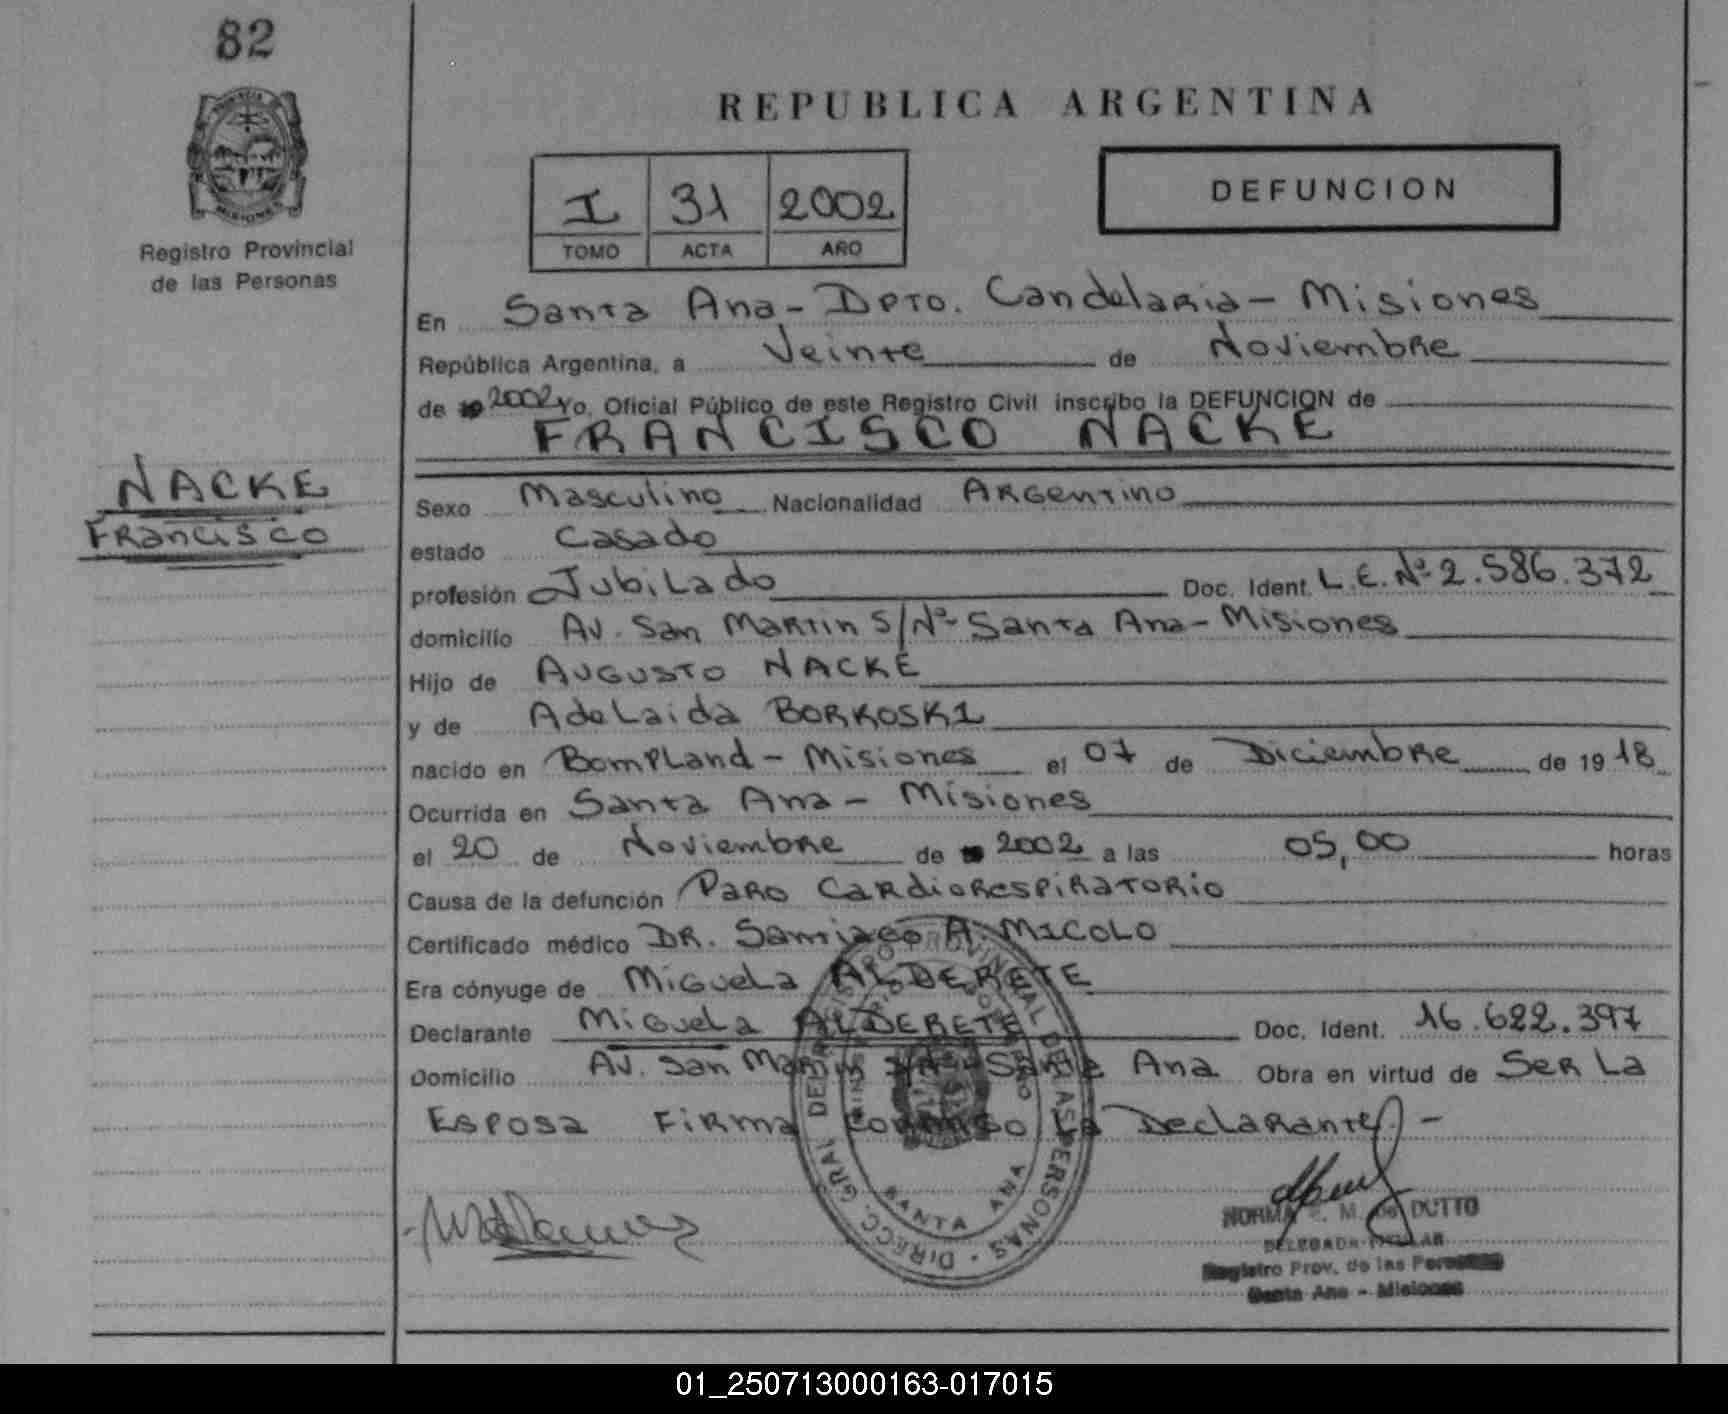 82
REPUBLICA ARGENTINA
DEFUNCION
I 31 2002
TOMO ACTA AÑO
Registro Provincial
de las Personas
En Santa Ana - Dpto. Candelaria - Misiones
República Argentina, a Veinte de Noviembre
de 2002 Yo, Oficial Público de este Registro Civil inscribo la DEFUNCION de
FRANCISCO NACKE
NACKE
Francisco
Sexo Masculino Nacionalidad Argentino
estado Casado
profesión Jubilado Doc. Ident. L.E. Nº 2.586.372
domicilio Av. San Martin S/Nº Santa Ana - Misiones
Hijo de Augusto NACKE
y de Adelaida BORKOSKI
nacido en Bompland - Misiones el 07 de Diciembre de 1918
Ocurrida en Santa Ana - Misiones
el 20 de Noviembre de 2002 a las 05,00 horas
Causa de la defunción Paro Cardiorespiratorio
Certificado médico DR. Santiago A. MICOLO
Era cónyuge de Miguela ALDERETE
Declarante Miguela ALDERETE Doc. Ident. 16.622.397
Domicilio Av. San Martin S/Nº Santa Ana Obra en virtud de Ser La
Esposa Firma Conmigo La Declarante. -
DIRECC. GRAL DEL REGISTRO PROVINCIAL DE LAS PERSONAS
SANTA ANA
NORMA E. M. de DUTTO
DELEGADA TITULAR
Registro Prov. de las Personas
Santa Ana - Misiones
01_250713000163-017015